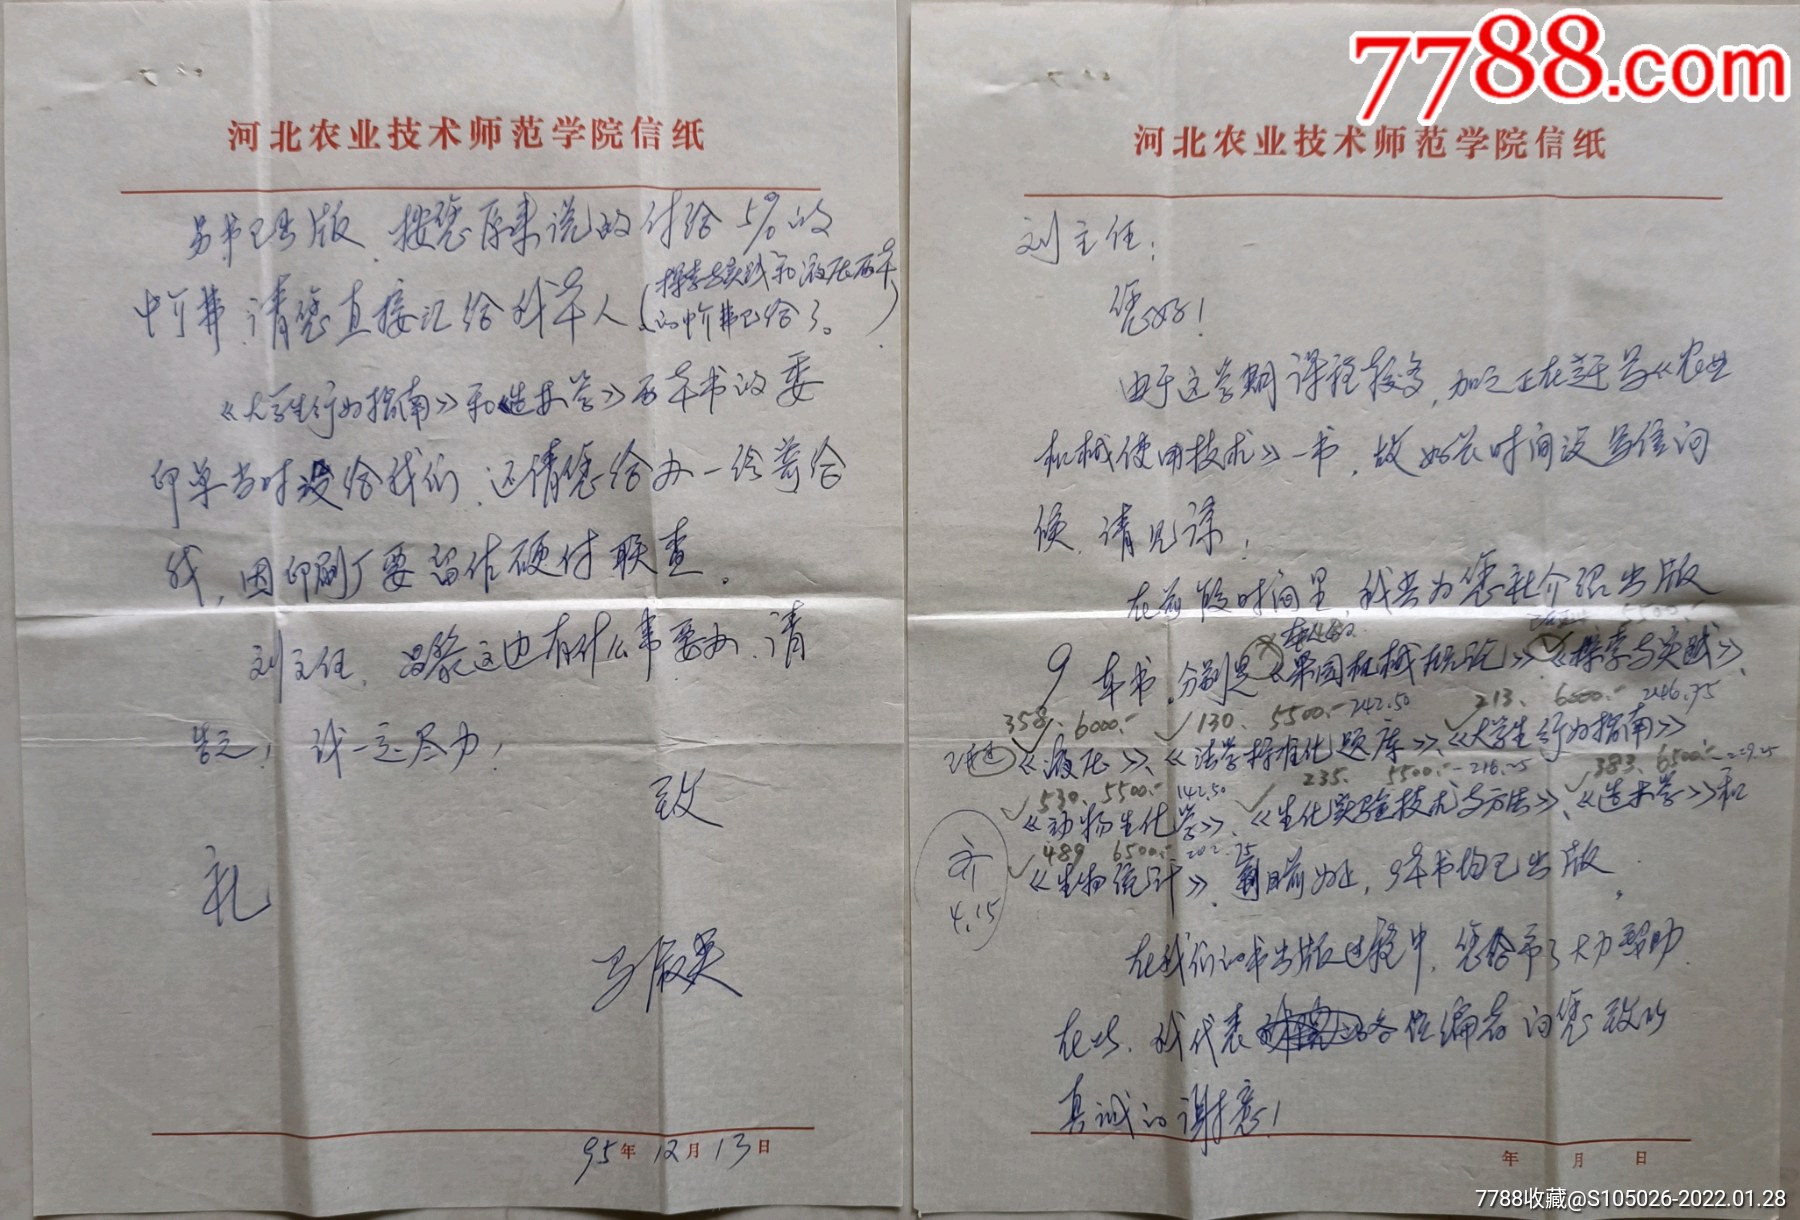 7788.com
河北农业技术师范学院信纸
刘主任:
您好!
由于这学期课程较多,加之正在主写《农业
机械使用技术》一书,故好长时间没写信问
候,请见谅!
在前段时间里,我共为您社介绍出版
5500.-
9本书,分别是《果园机械概论》《探索与实践》、
358. 6000.- 130. 5500.- 242.50 213. 6000.- 246.75
《液压》、《法学标准化题库》、《大学生行为指南》
530. 5500.- 142.50 235. 5500.- 216.25 383. 6500.- 229.25
《动物生化学》、《生化实验技术与方法》、《造林学》和
489 6500.- 202.75
《生物统计》。到目前为止,9本书均已出版。
齐
4.15
在我们的书出版过程中,您给予了大力帮助.
在此,我代表各位编者向您致以
真诚的谢意!
年 月 日
河北农业技术师范学院信纸
另书已出版,按您原来说的付给5%的
中介费,请您直接汇给我本人(探索与实践和液压两本
的中介费已给了。)
《大学生行为指南》和《造林学》两本书的委
印单当时没给我们,还请您给办一份寄给
我,因印刷厂要留作硬付联查。
刘主任,昌黎这边有什么事要办,请
告之!我一定尽力!
致
礼
马 英
95年12月13日
7788收藏@S105026-2022.01.28